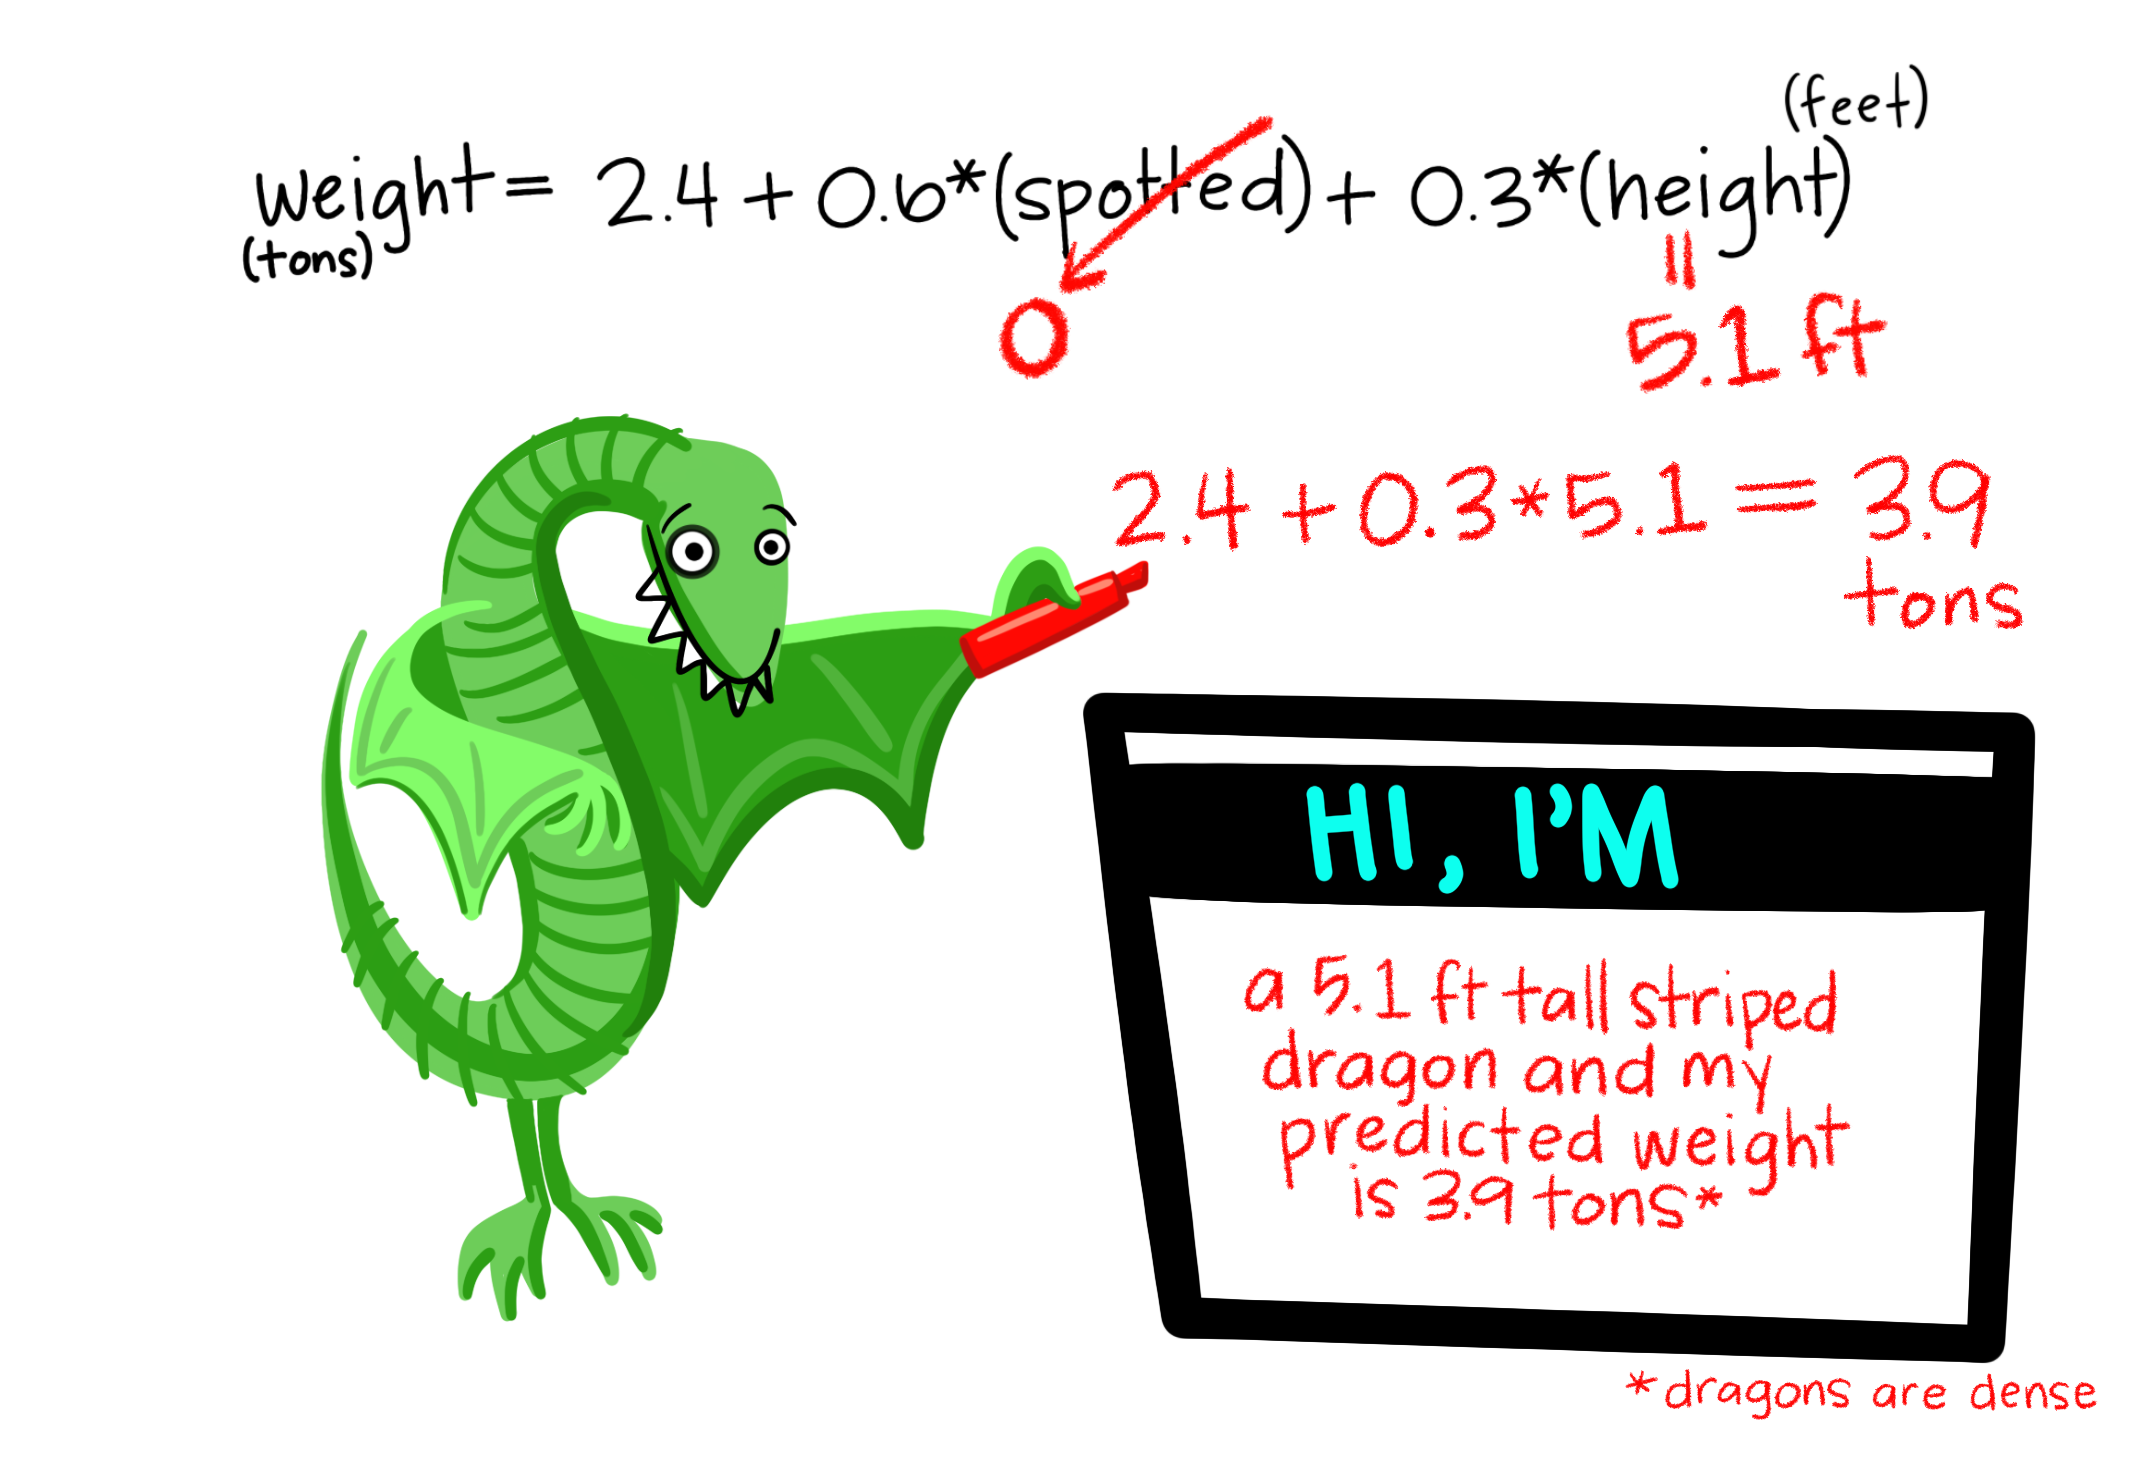 (feet)
weight = 2.4 + 0.6*(spotted) + 0.3*(height)
(tons)
||
0
5.1 ft
2.4 + 0.3*5.1 = 3.9
tons
HI, I'M
a 5.1 ft tall striped
dragon and my
predicted weight
is 3.9 tons*
*dragons are dense